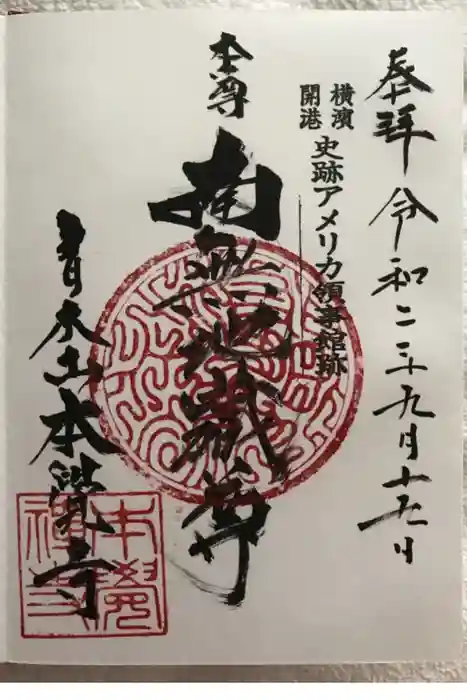 奉拝 令和二年九月十五日
横濱
開港
史跡アメリカ領事館跡
本尊
南無地蔵尊
青木山本覺寺
本覺
禅寺